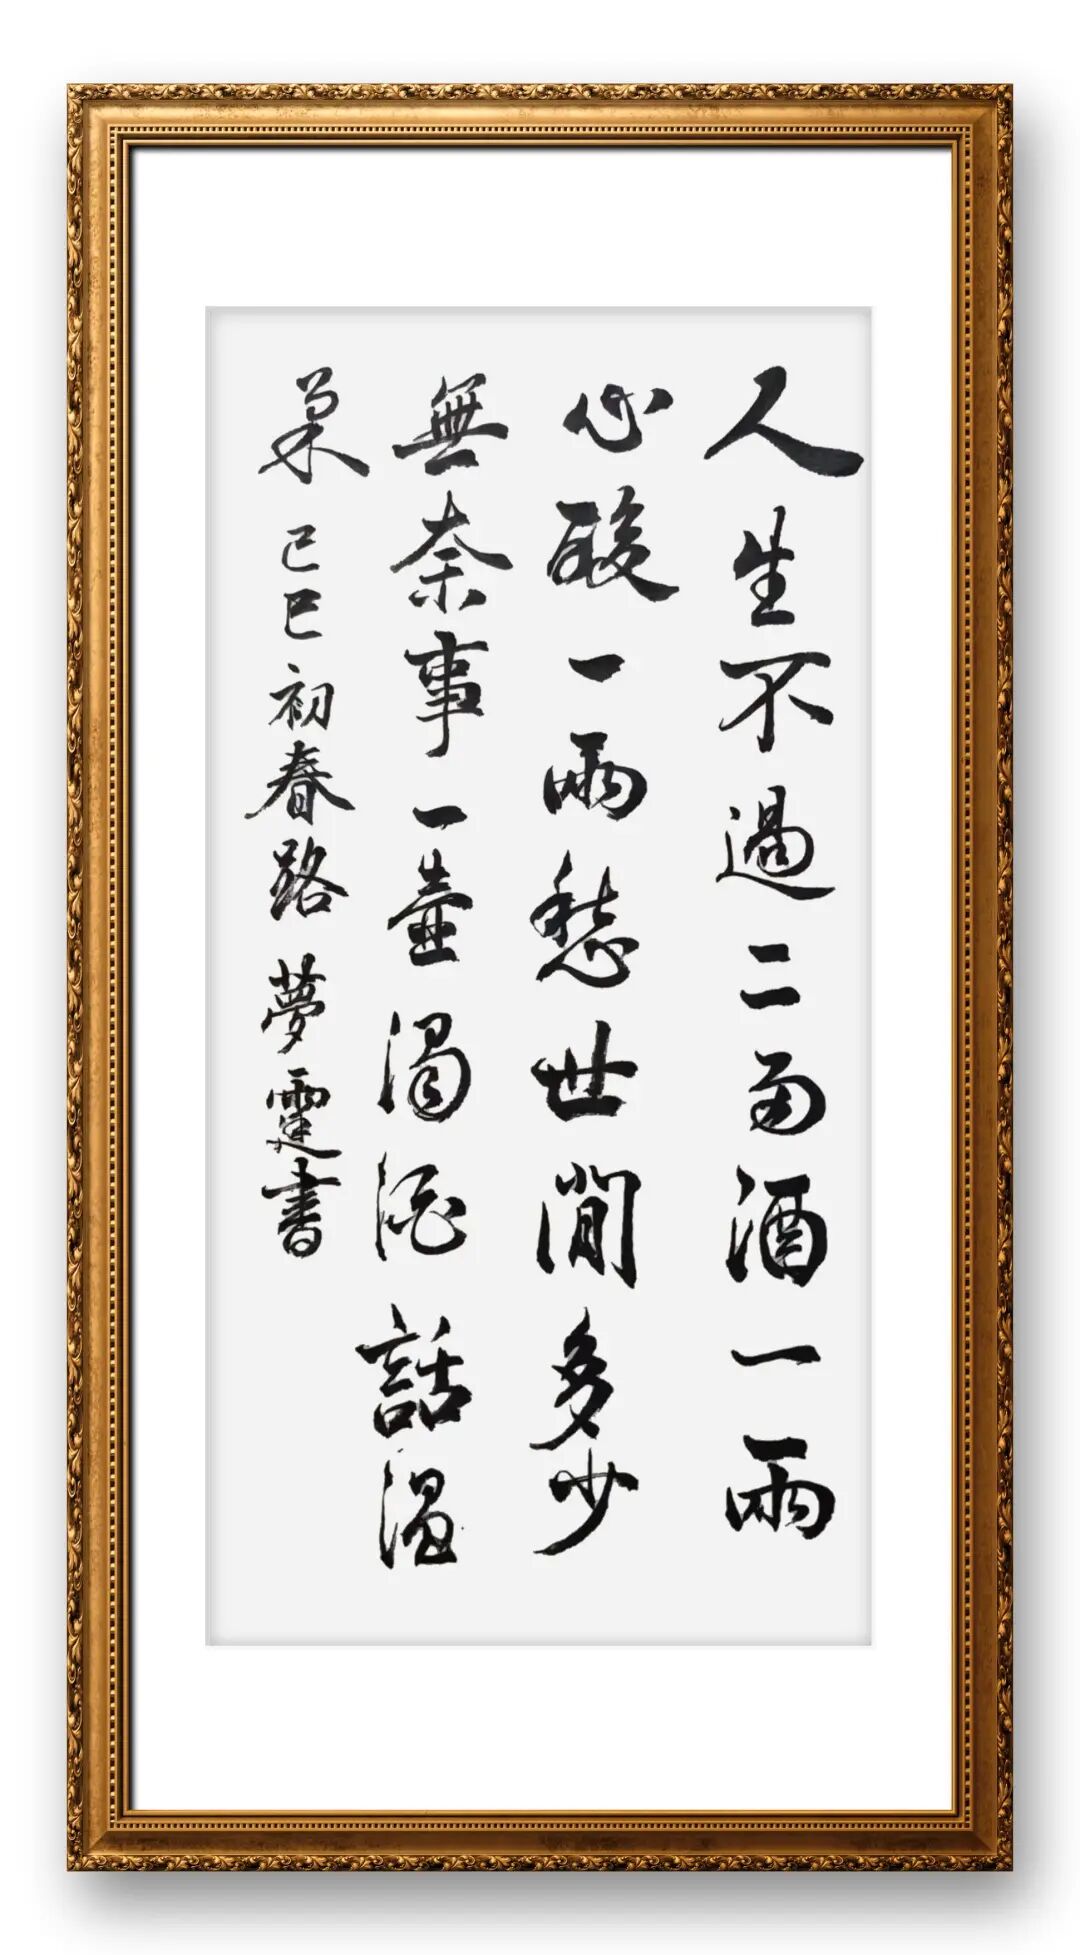 人生不過二兩酒一兩
心酸一兩愁世間多少
無奈事一壺濁酒話溫
柔 己巳初春路夢霆書